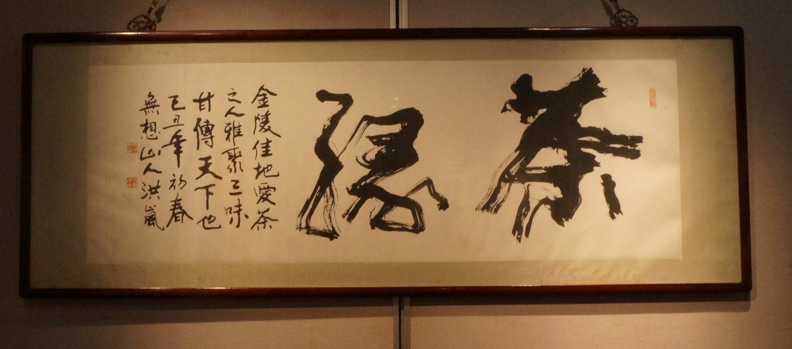 茶緣
金陵佳地愛茶
之人雅聚三味
甘傳天下也
己丑年初春
無想山人洪嵐